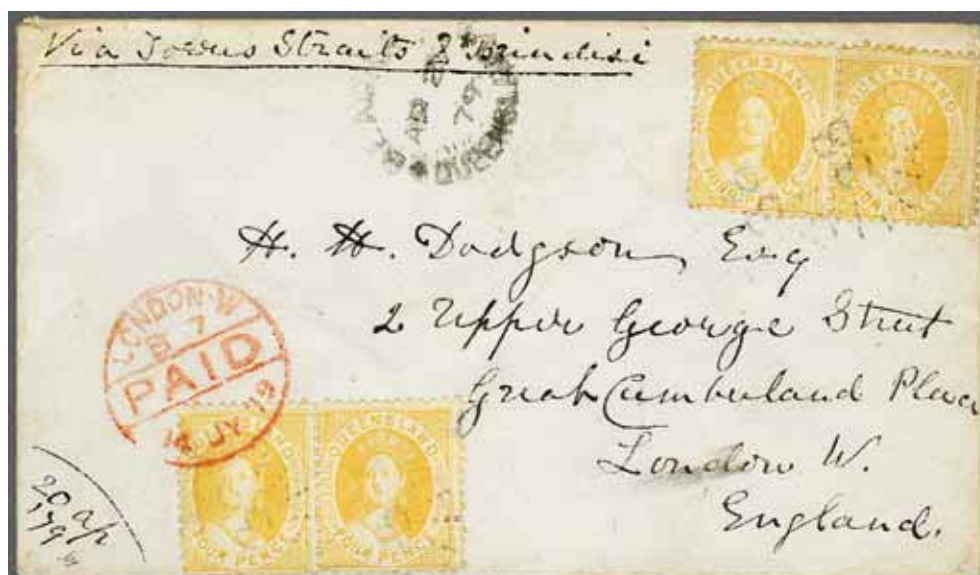 Via Torres Straits & Brindisi
AP 2
79
QUEENSLAND
QUEENSLAND
QUEENSLAND
H. H. Dodgson, Esq
2 Upper George Street
Great Cumberland Place
London W.
England.
LONDON·W
7
PAID
14 JY 79
QUEENSLAND
FOUR PENCE
FOUR PENCE
20 ap
1879